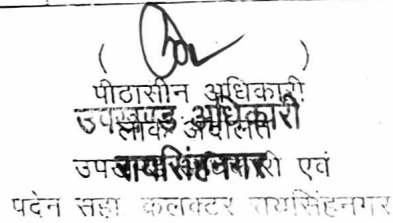 ( )
पीठासीन अधिकारी
उपखण्ड अधिकारी
लोक अदालत
रायसिंहनगर
उपखण्ड अधिकारी एवं
पदेन सहा कलक्टर रायसिंहनगर